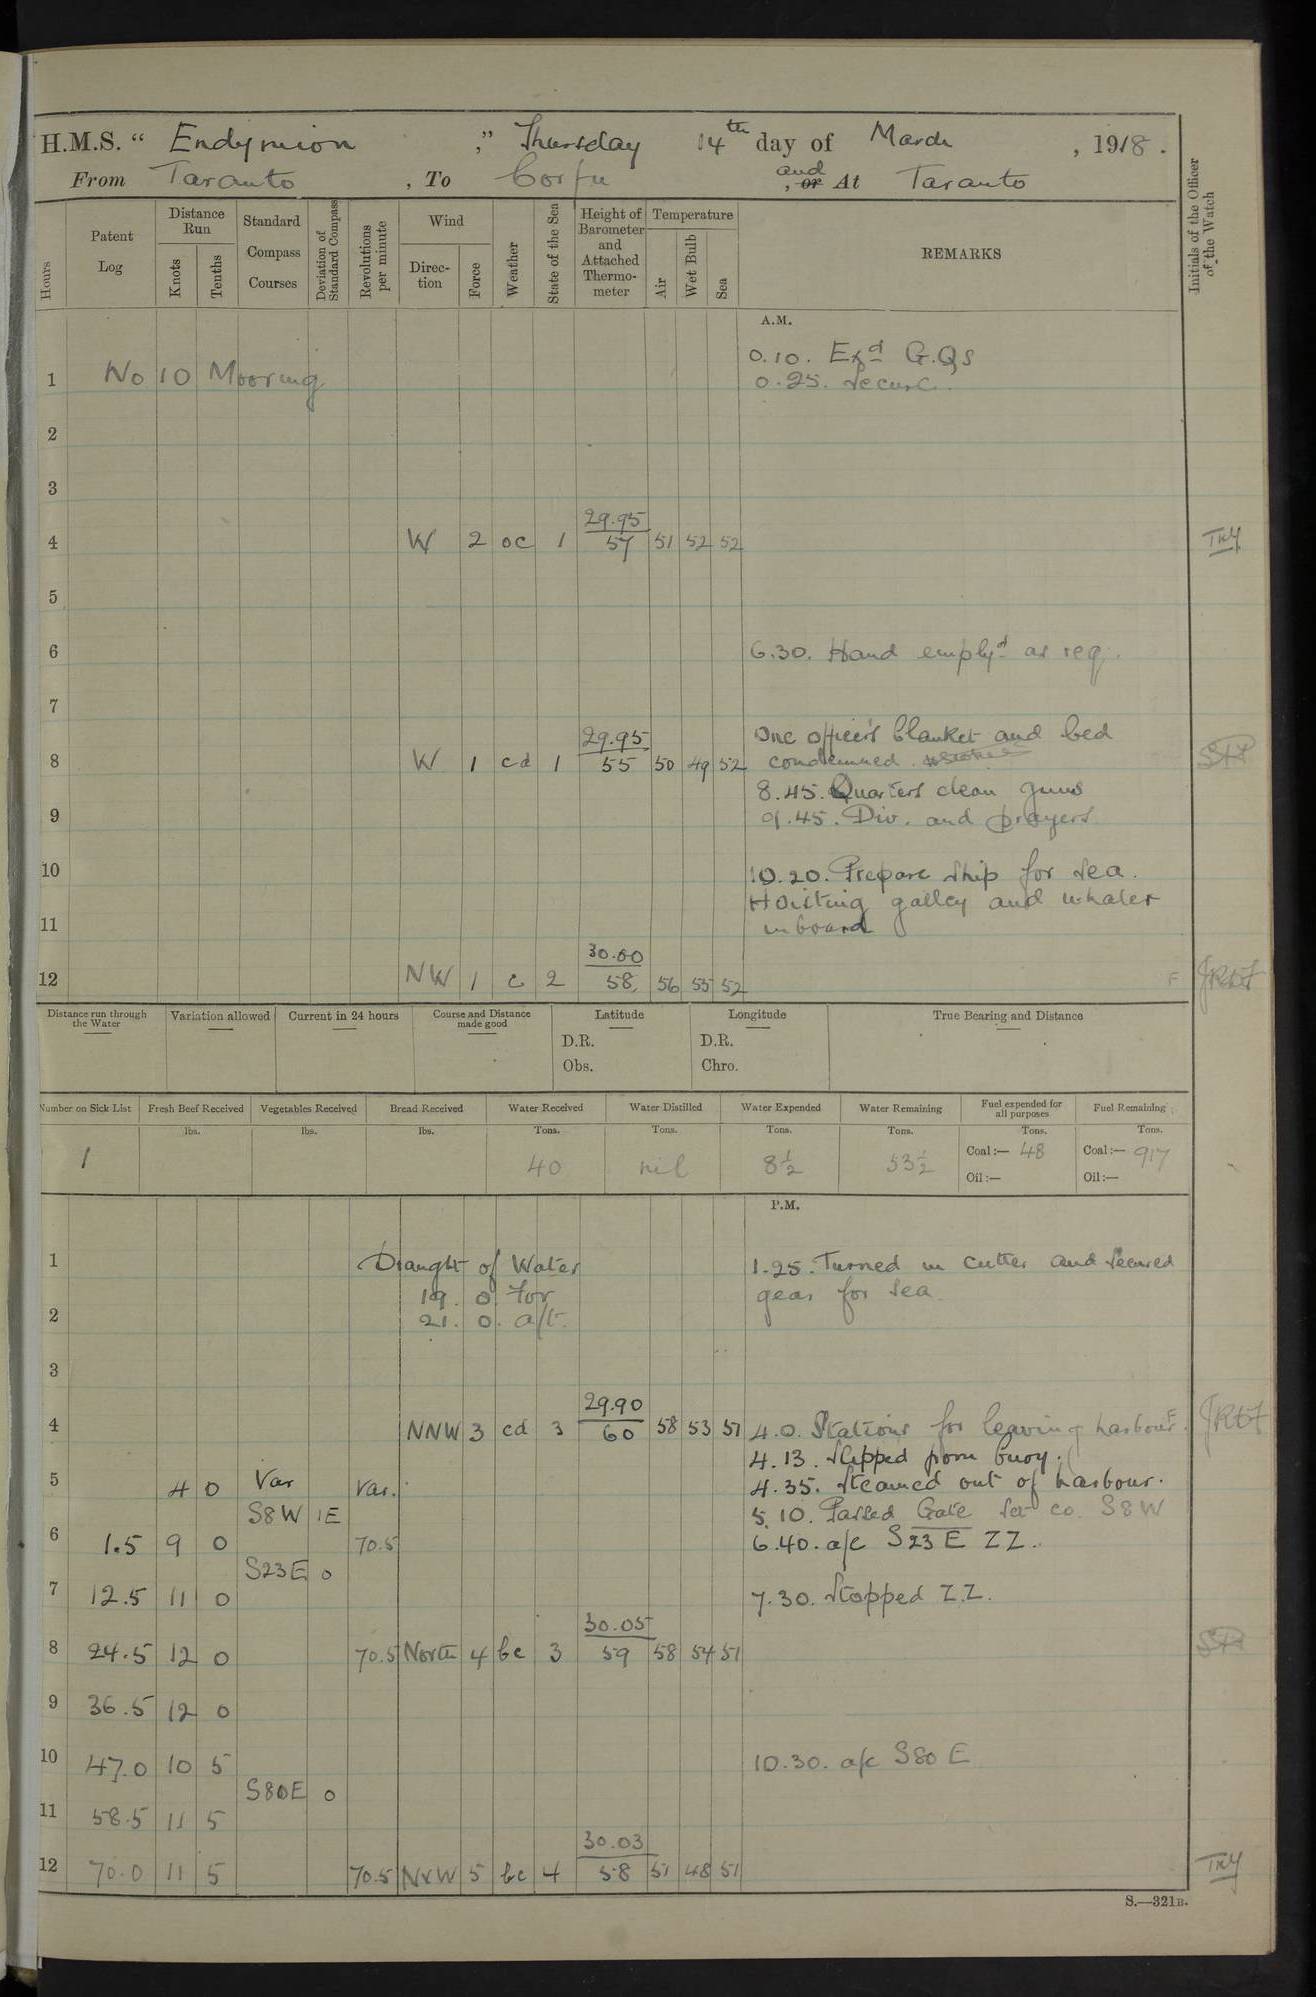 H.M.S. “ Endymion ,” Thursday 14th day of March , 1918.
From Taranto , To Corfu and , or At Taranto
Hours
Patent Log
Distance Run
Knots
Tenths
Standard Compass Courses
Deviation of Standard Compass
Revolutions per minute
Wind
Direction
Force
Weather
State of the Sea
Height of Barometer and Attached Thermometer
Temperature
Air
Wet Bulb
Sea
REMARKS
Initials of the Officer of the Watch
A.M.
0.10. Exd G.Qs
1 No 10 Mooring 0.25. Secure.
2
3
29.95
4 W 2 oc 1 57 51 52 52
5
6 6.30. Hand emplyd as req.
7
29.95 One officer's blanket and bed
8 W 1 cd 1 55 50 49 52 condemned.
8.45. Quarters clean guns
9 9.45. Div. and prayers
10 10.20. Prepare ship for sea.
Hoisting galley and whaler
11 inboard
30.00
12 NW 1 c 2 58 56 55 52
Distance run through the Water
Variation allowed
Current in 24 hours
Course and Distance made good
Latitude
Longitude
True Bearing and Distance
D.R. D.R.
Obs. Chro.
Number on Sick List
Fresh Beef Received
Vegetables Received
Bread Received
Water Received
Water Distilled
Water Expended
Water Remaining
Fuel expended for all purposes
Fuel Remaining
lbs. lbs. lbs. Tons. Tons. Tons. Tons. Tons. Tons.
1 40 nil 8½ 53½ Coal:— 48 Coal:— 917
Oil:— Oil:—
P.M.
1 Draught of Water 1.25. Turned in cutter and secured
19. 0 For gear for sea.
2 21. 0. aft.
3
29.90
4 NNW 3 cd 3 60 58 53 51 4.0. Stations for leaving harbour.
4.13. Slipped from buoy.
5 4 0 Var Var. 4.35. Steamed out of harbour.
S8W 1E 5.10. Passed Gate set co. S8W
6 1.5 9 0 70.5 6.40. a/c S23E ZZ.
S23E 0
7 12.5 11 0 7.30. Stopped Z.Z.
30.05
8 24.5 12 0 70.5 North 4 bc 3 59 58 54 51
9 36.5 12 0
10 47.0 10 5 10.30. a/c S80E
S80E 0
11 58.5 11 5
30.03
12 70.0 11 5 70.5 NxW 5 bc 4 58 51 48 51
S.—321B.